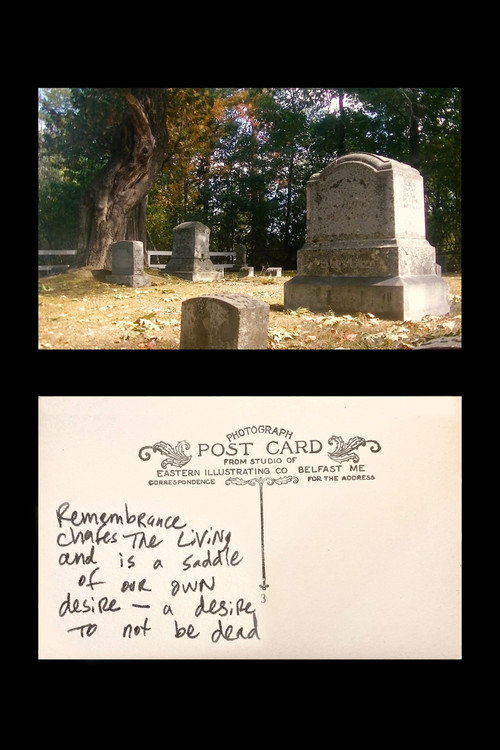 PHOTOGRAPH
POST CARD
FROM STUDIO OF
EASTERN ILLUSTRATING CO BELFAST ME
CORRESPONDENCE FOR THE ADDRESS
Remembrance
chafes The Living
and is a saddle
of our own
desire — a desire
to not be dead
3